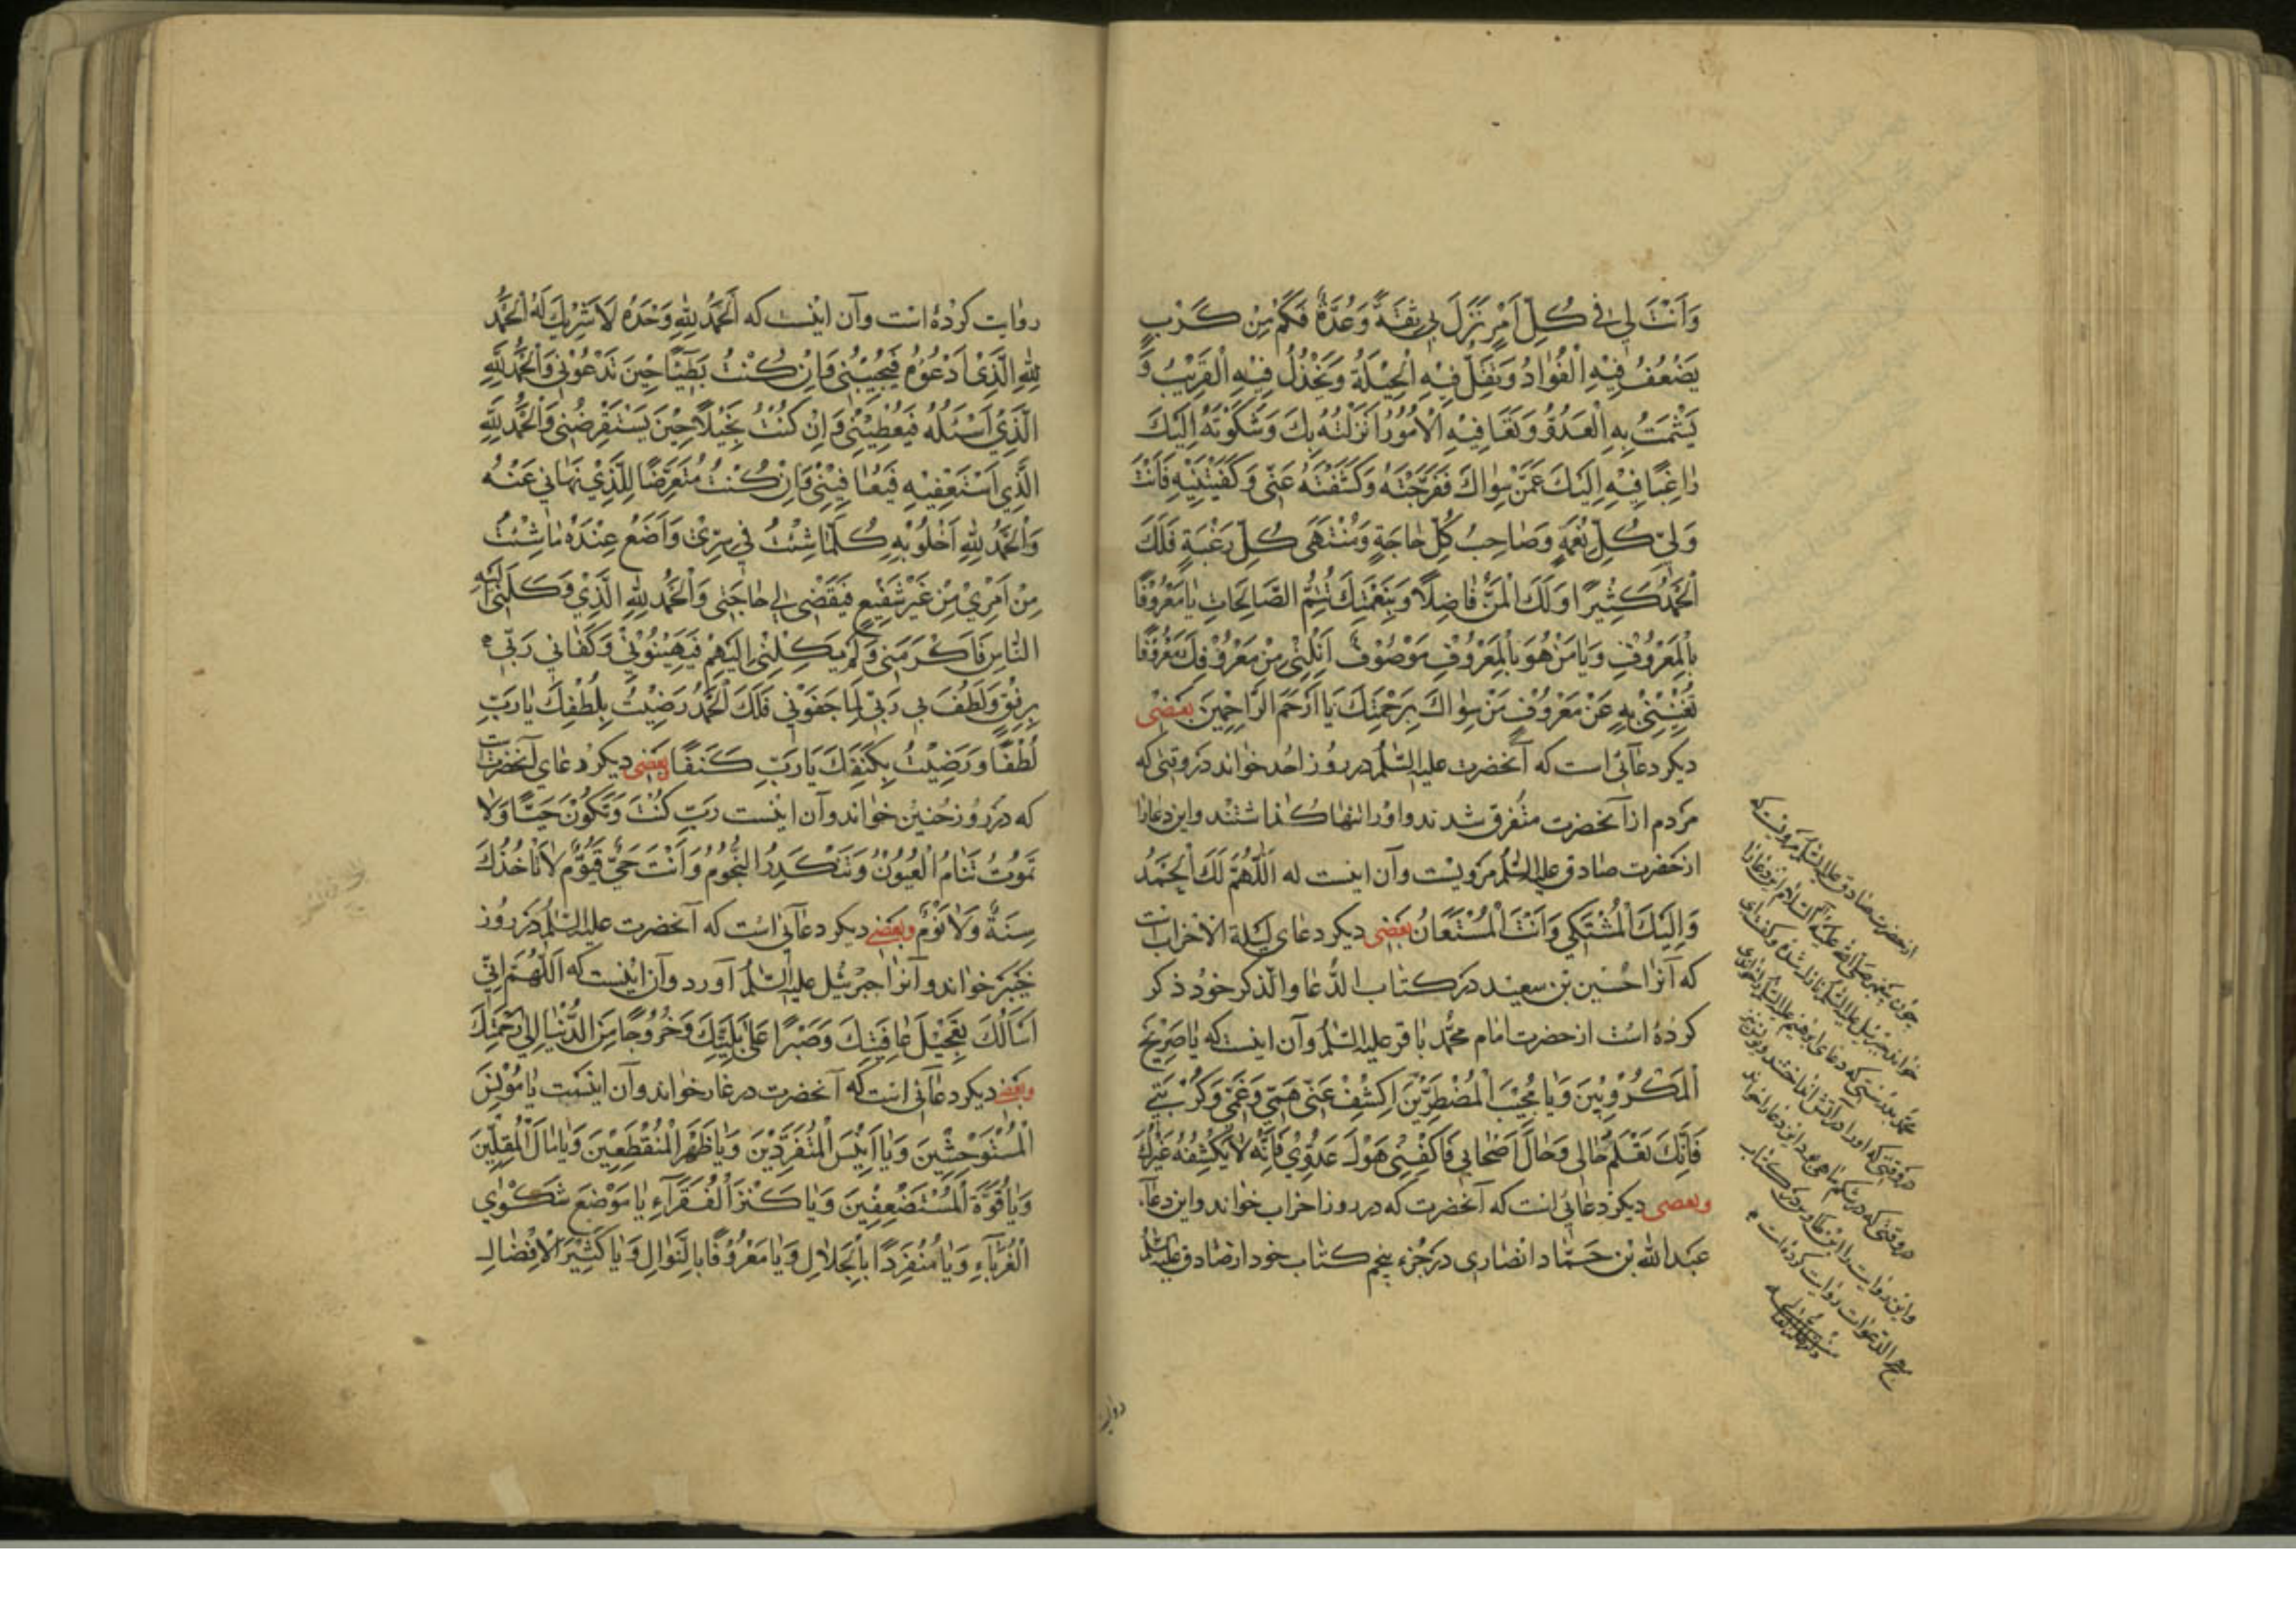 وَأَنْتَ لِي فِي كُلِّ أَمْرٍ نَزَلَ بِي ثِقَةٌ وَعُدَّةٌ فَكَمْ مِنْ كَرْبٍ
يَضْعُفُ فِيهِ الْفُؤَادُ وَتَقِلُّ فِيهِ الْحِيلَةُ وَيَخْذُلُ فِيهِ الْقَرِيبُ وَ
يَشْمَتُ بِهِ الْعَدُوُّ وَ فِيهِ الْأُمُورُ أَنْزَلْتُهُ بِكَ وَشَكَوْتُهُ إِلَيْكَ
رَاغِبًا فِيهِ إِلَيْكَ عَمَّنْ سِوَاكَ فَفَرَّجْتَهُ وَكَشَفْتَهُ عَنِّي وَكَفَيْتَنِيهِ فَأَنْتَ
وَلِيُّ كُلِّ نِعْمَةٍ وَصَاحِبُ كُلِّ حَاجَةٍ وَمُنْتَهَى كُلِّ رَغْبَةٍ فَلَكَ
الْحَمْدُ كَثِيرًا وَلَكَ الْمَنُّ فَاضِلًا وَبِنِعْمَتِكَ تَتِمُّ الصَّالِحَاتِ يَا مَعْرُوفًا
بِالْمَعْرُوفِ وَيَا مَنْ هُوَ بِالْمَعْرُوفِ مَوْصُوفٌ أَنِلْنِي مِنْ مَعْرُوفِكَ مَعْرُوفًا
تُغْنِينِي بِهِ عَنْ مَعْرُوفِ مَنْ سِوَاكَ بِرَحْمَتِكَ يَا أَرْحَمَ الرَّاحِمِينَ بعضی
دیکر دعائی است که آنحضرت علیه السّلم در روز احُد خواند در وقتی که
مردم از آنحضرت متفرق شدند و اورا تنها کذاشتند و این دعا از
از حضرت صادق علیه السّلم مرویست و آن اینست له اَللّٰهُمَّ لَكَ الْحَمْدُ
وَإِلَيْكَ الْمُشْتَكَى وَأَنْتَ الْمُسْتَعَانُ بعضی دیکر دعای لیلة الاحزاب است
که آنرا حسین بن سعید در کتاب الدّعا والذّکر خود ذکر
کرده است از حضرت امام محمّد باقر علیه السّلم و آن اینست که یَا صَرِیخَ
الْمَكْرُوبِينَ وَيَا مُجِيبَ الْمُضْطَرِّينَ اكْشِفْ عَنِّي هَمِّي وَغَمِّي وَكُرْبَتِي
فَإِنَّكَ تَعْلَمُ حَالِي وَحَالَ أَصْحَابِي فَاكْفِنِي هَوْلَ عَدُوِّي فَإِنَّهُ لَا يَكْشِفُهُ غَيْرُكَ
وبعضی دیکر دعائی است که آنحضرت که در روز احزاب خواند و این دعا
عبد الله بن حمّاد انصاری در جزء پنجم کتاب خود از صادق علیه السّلم
از حضرت صادق علیه السّلم مرویست که
چون پیغمبر صلی الله علیه و آله این دعا را
خواند جبرئیل علیه السّلم نازل شد و گفت ای
محمّد بدرستی که دعای ابراهیم علیه السّلم
در وقتی که اورا در آتش انداختند و یونس نیز
در وقتی که در شکم ماهی بود این دعا را خواند
و این روایت را ابن طاوس در کتاب
مهج الدّعوات روایت کرده است
روایت
روایت کرده است و آن اینست که اَلْحَمْدُ لِلّٰهِ وَحْدَهُ لَا شَرِيكَ لَهُ الْحَمْدُ
لِلّٰهِ الَّذِي أَدْعُوهُ فَيُجِيبُنِي وَإِنْ كُنْتُ بَطِيئًا حِينَ تَدْعُونِي وَالْحَمْدُ لِلّٰهِ
الَّذِي أَسْئَلُهُ فَيُعْطِينِي وَإِنْ كُنْتُ بَخِيلًا حِينَ يَسْتَقْرِضُنِي وَالْحَمْدُ لِلّٰهِ
الَّذِي أَسْتَعْفِيهِ فَيُعَافِينِي وَإِنْ كُنْتُ مُتَعَرِّضًا لِلَّذِي نَهَانِي عَنْهُ
وَالْحَمْدُ لِلّٰهِ أَخْلُو بِهِ كُلَّمَا شِئْتُ فِي سِرِّي وَأَضَعُ عِنْدَهُ مَا شِئْتُ
مِنْ أَمْرِي مِنْ غَيْرِ شَفِيعٍ فَيَقْضِي لِي حَاجَتِي وَالْحَمْدُ لِلّٰهِ الَّذِي وَكَلَنِي إِلَيْهِ
النَّاسُ فَأَكْرَمَنِي وَلَمْ يَكِلْنِي إِلَيْهِمْ فَيُهِينُونِي وَكَفَانِي رَبِّي
بِرِفْقٍ وَلَطُفَ بِي رَبِّي لَمَّا جَفَوْنِي فَلَكَ الْحَمْدُ رَضِيتُ بِلُطْفِكَ يَا رَبِّ
لُطْفًا وَرَضِيتُ بِكَنَفِكَ يَا رَبِّ كَنَفًا بعضی دیکر دعای آنحضرت
که در روز حنین خواند و آن اینست رَبِّ كُنْتَ وَتَكُونُ حَيًّا وَلَا
تَمُوتُ تَنَامُ الْعُيُونُ وَتَنْكَدِرُ النُّجُومُ وَأَنْتَ حَيٌّ قَيُّومٌ لَا تَأْخُذُكَ
سِنَةٌ وَلَا نَوْمٌ وبعضی دیکر دعائی است که آنحضرت علیه السّلم در روز
خیبر خواند و آنرا جبرئیل علیه السّلم آورد و آن اینست که اَللّٰهُمَّ إِنِّي
أَسْأَلُكَ تَعْجِيلَ عَافِيَتِكَ وَصَبْرًا عَلَى بَلِيَّتِكَ وَخُرُوجًا مِنَ الدُّنْيَا إِلَى رَحْمَتِكَ
وبعضی دیکر دعائی است که آنحضرت در غار خواند و آن اینست یَا مُونِسَ
الْمُسْتَوْحِشِينَ وَيَا أَنِيسَ الْمُتَفَرِّدِينَ وَيَا ظَهْرَ الْمُنْقَطِعِينَ وَيَا مَالَ الْمُقِلِّينَ
وَيَا قُوَّةَ الْمُسْتَضْعَفِينَ وَيَا كَنْزَ الْفُقَرَاءِ يَا مَوْضِعَ شَكْوَى
الْغُرَبَاءِ وَيَا مُنْفَرِدًا بِالْجَلَالِ وَيَا مَعْرُوفًا بِالنَّوَالِ وَيَا كَثِيرَ الْإِفْضَالِ